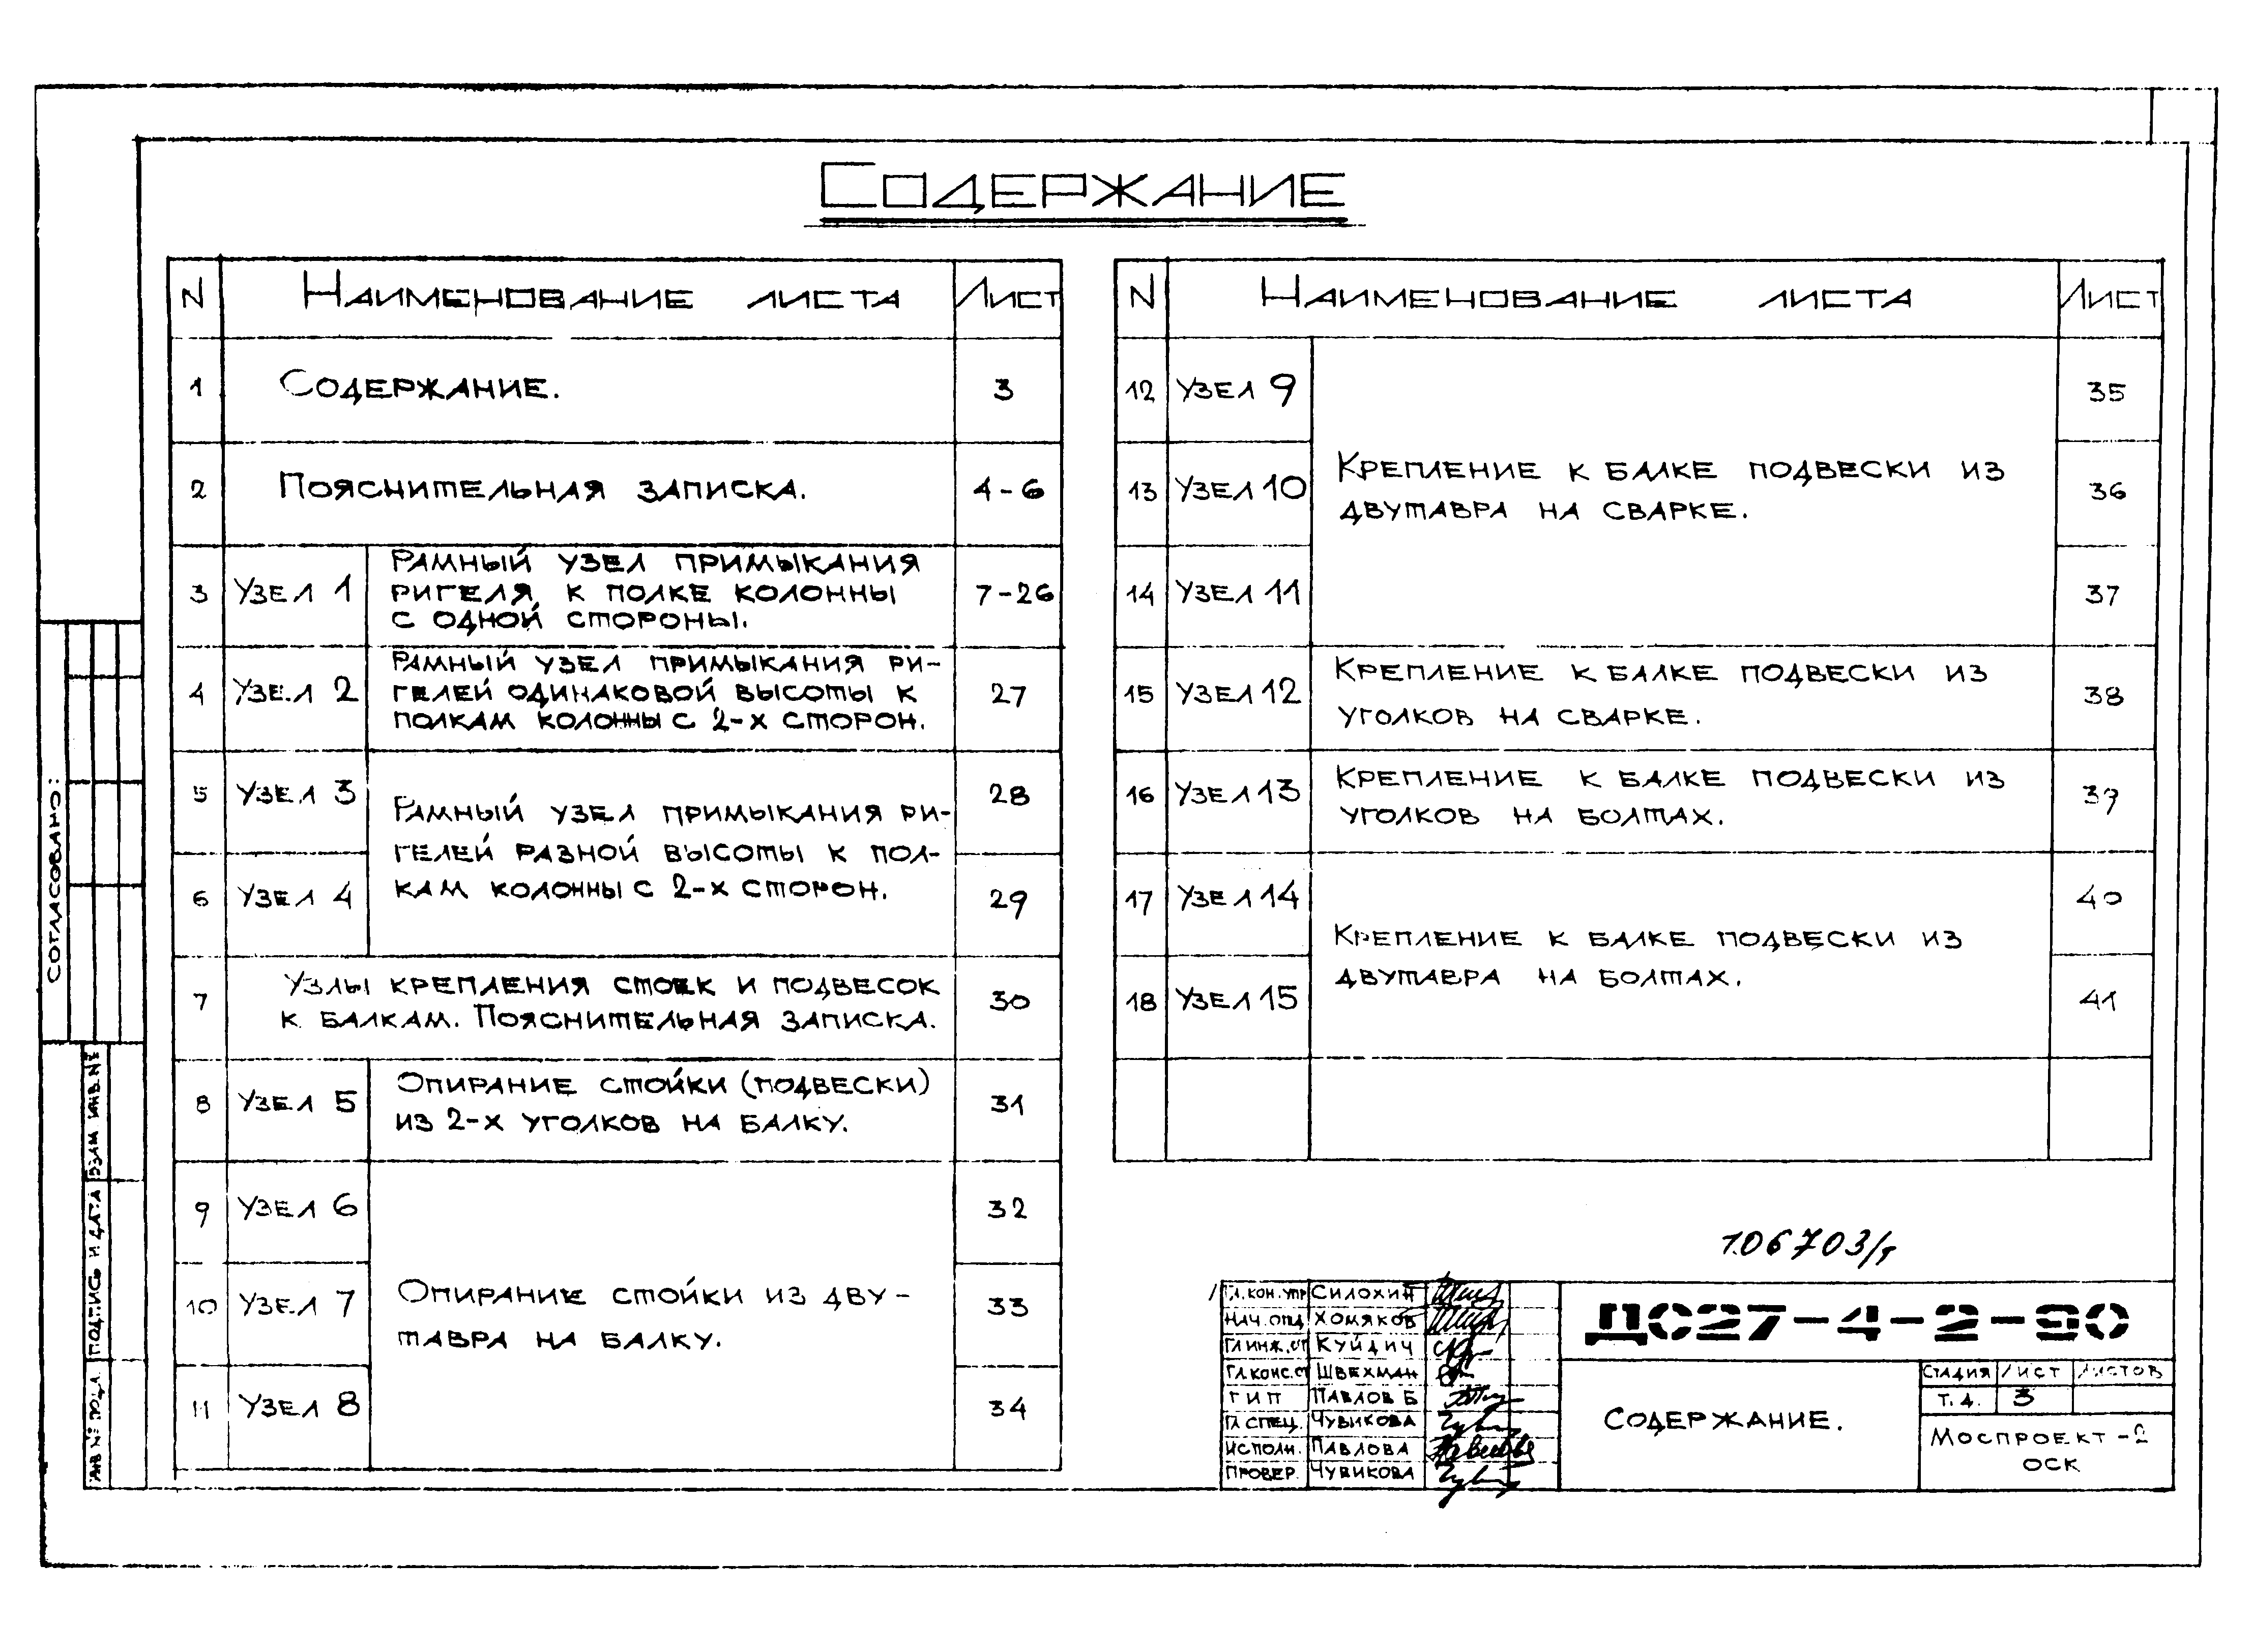 Содержание
N Наименование листа Лист
1 Содержание. 3
2 Пояснительная записка. 4-6
3 Узел 1 Рамный узел примыкания
ригеля к полке колонны
с одной стороны. 7-26
4 Узел 2 Рамный узел примыкания ри-
гелей одинаковой высоты к
полкам колонны с 2-х сторон. 27
5 Узел 3 28
Рамный узел примыкания ри-
гелей разной высоты к пол-
кам колонны с 2-х сторон.
6 Узел 4 29
7 Узлы крепления стоек и подвесок
к балкам. Пояснительная записка. 30
8 Узел 5 Опирание стойки (подвески)
из 2-х уголков на балку. 31
9 Узел 6 32
10 Узел 7 Опирание стойки из дву-
тавра на балку. 33
11 Узел 8 34
N Наименование листа Лист
12 Узел 9 35
13 Узел 10 Крепление к балке подвески из
двутавра на сварке. 36
14 Узел 11 37
15 Узел 12 Крепление к балке подвески из
уголков на сварке. 38
16 Узел 13 Крепление к балке подвески из
уголков на болтах. 39
17 Узел 14 40
Крепление к балке подвески из
двутавра на болтах.
18 Узел 15 41
Согласовано:
Взам инв. №
Подпись и дата
Инв № подл.
106703/1
Гл.кон.упр Силохин
Нач.отд Хомяков
Гл инж.от Куйдич
Гл.конс.от Швехман
ГИП Павлов Б
Гл спец. Чувикова
Исполн. Павлова
Провер. Чувикова
ДС27-4-2-90
Содержание.
Стадия Лист Листов
Т.Д. 3
Моспроект-2
ОСК